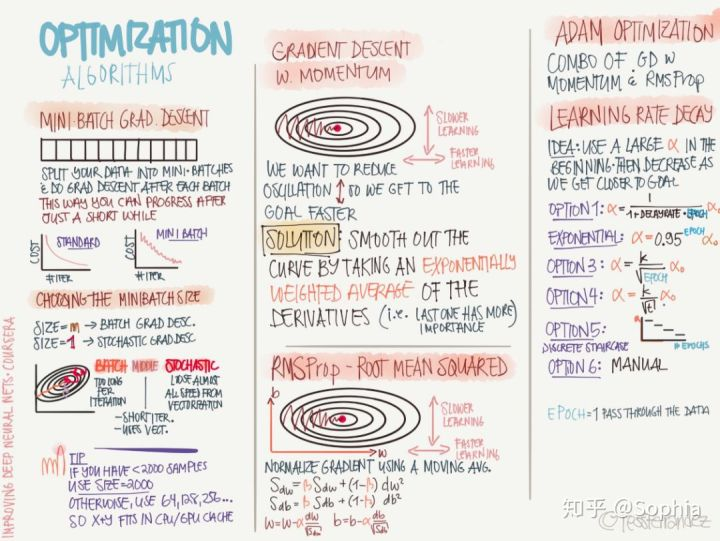 OPTIMIZATION
ALGORITHMS
MINI-BATCH GRAD. DESCENT
SPLIT YOUR DATA INTO MINI-BATCHES
& DO GRAD DESCENT AFTER EACH BATCH
THIS WAY YOU CAN PROGRESS AFTER
JUST A SHORT WHILE
COST
STANDARD
# ITER
COST
MINI BATCH
# ITER
CHOOSING THE MINIBATCH SIZE
SIZE=m → BATCH GRAD DESC.
SIZE=1 → STOCHASTIC GRAD DESC.
BATCH MIDDLE STOCHASTIC
TOO LONG
PER
ITERATION
LOSE ALMOST
ALL SPEED FROM
VECTORIZATION
-SHORT ITER.
-USES VECT.
TIP
IF YOU HAVE <2000 SAMPLES
USE SIZE=2000
OTHERWISE, USE 64,128,256...
SO X+Y FITS IN CPU/GPU CACHE
IMPROVING DEEP NEURAL NETS · COURSERA
GRADIENT DESCENT
W. MOMENTUM
SLOWER
LEARNING
FASTER
LEARNING
WE WANT TO REDUCE
OSCILLATION ↕ SO WE GET TO THE
GOAL FASTER
SOLUTION: SMOOTH OUT THE
CURVE BY TAKING AN EXPONENTIALLY
WEIGHTED AVERAGE OF THE
DERIVATIVES (i.e. LAST ONE HAS MORE)
IMPORTANCE
RMSProp - ROOT MEAN SQUARED
b
SLOWER
LEARNING
FASTER
LEARNING
w
NORMALIZE GRADIENT USING A MOVING AVG.
Sdw = β Sdw + (1-β) dw²
Sdb = β Sdb + (1-β) db²
w=w-α dw/√Sdw b=b-α db/√Sdb
ADAM OPTIMIZATION
COMBO OF GD W
MOMENTUM & RMSProp
LEARNING RATE DECAY
IDEA: USE A LARGE α IN THE
BEGINNING THEN DECREASE AS
WE GET CLOSER TO GOAL
OPTION 1: α= 1/(1+DECAYRATE·EPOCH) α₀
EXPONENTIAL: α=0.95^EPOCH α₀
OPTION 3: α= k/√EPOCH α₀
OPTION 4: α= k/√t α₀
OPTION 5:
DISCRETE STAIRCASE
# EPOCHS
OPTION 6: MANUAL
EPOCH=1 PASS THROUGH THE DATA
知乎 @Sophia
@TessFerrandez